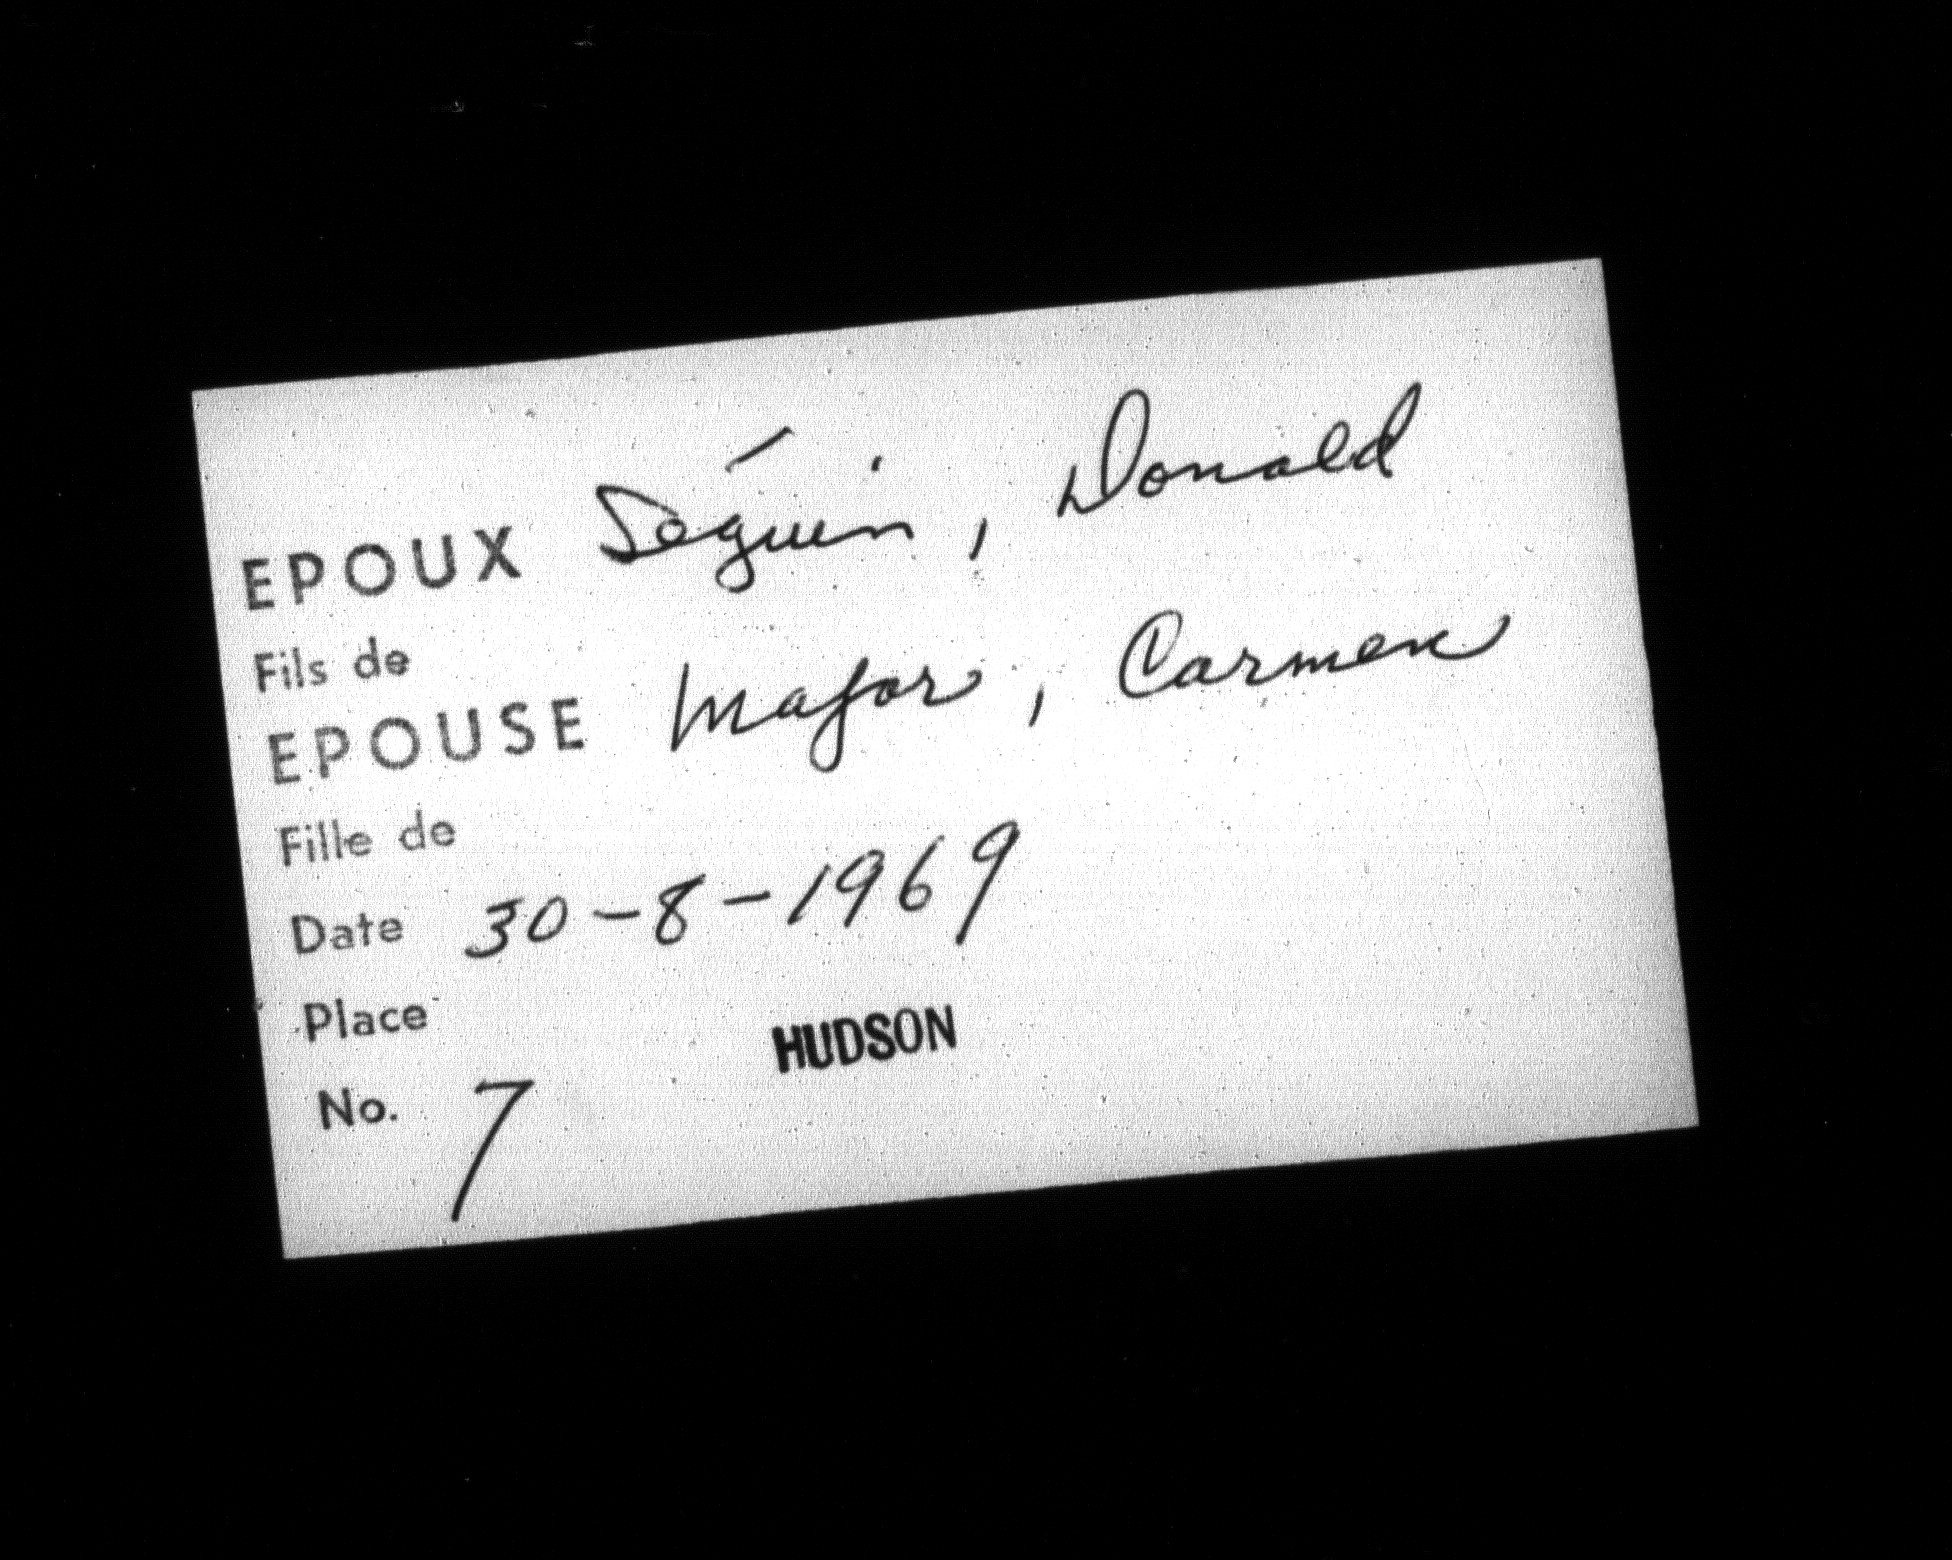 EPOUX Séguin, Donald
Fils de
EPOUSE Major, Carmen
Fille de
Date 30-8-1969
Place HUDSON
No. 7